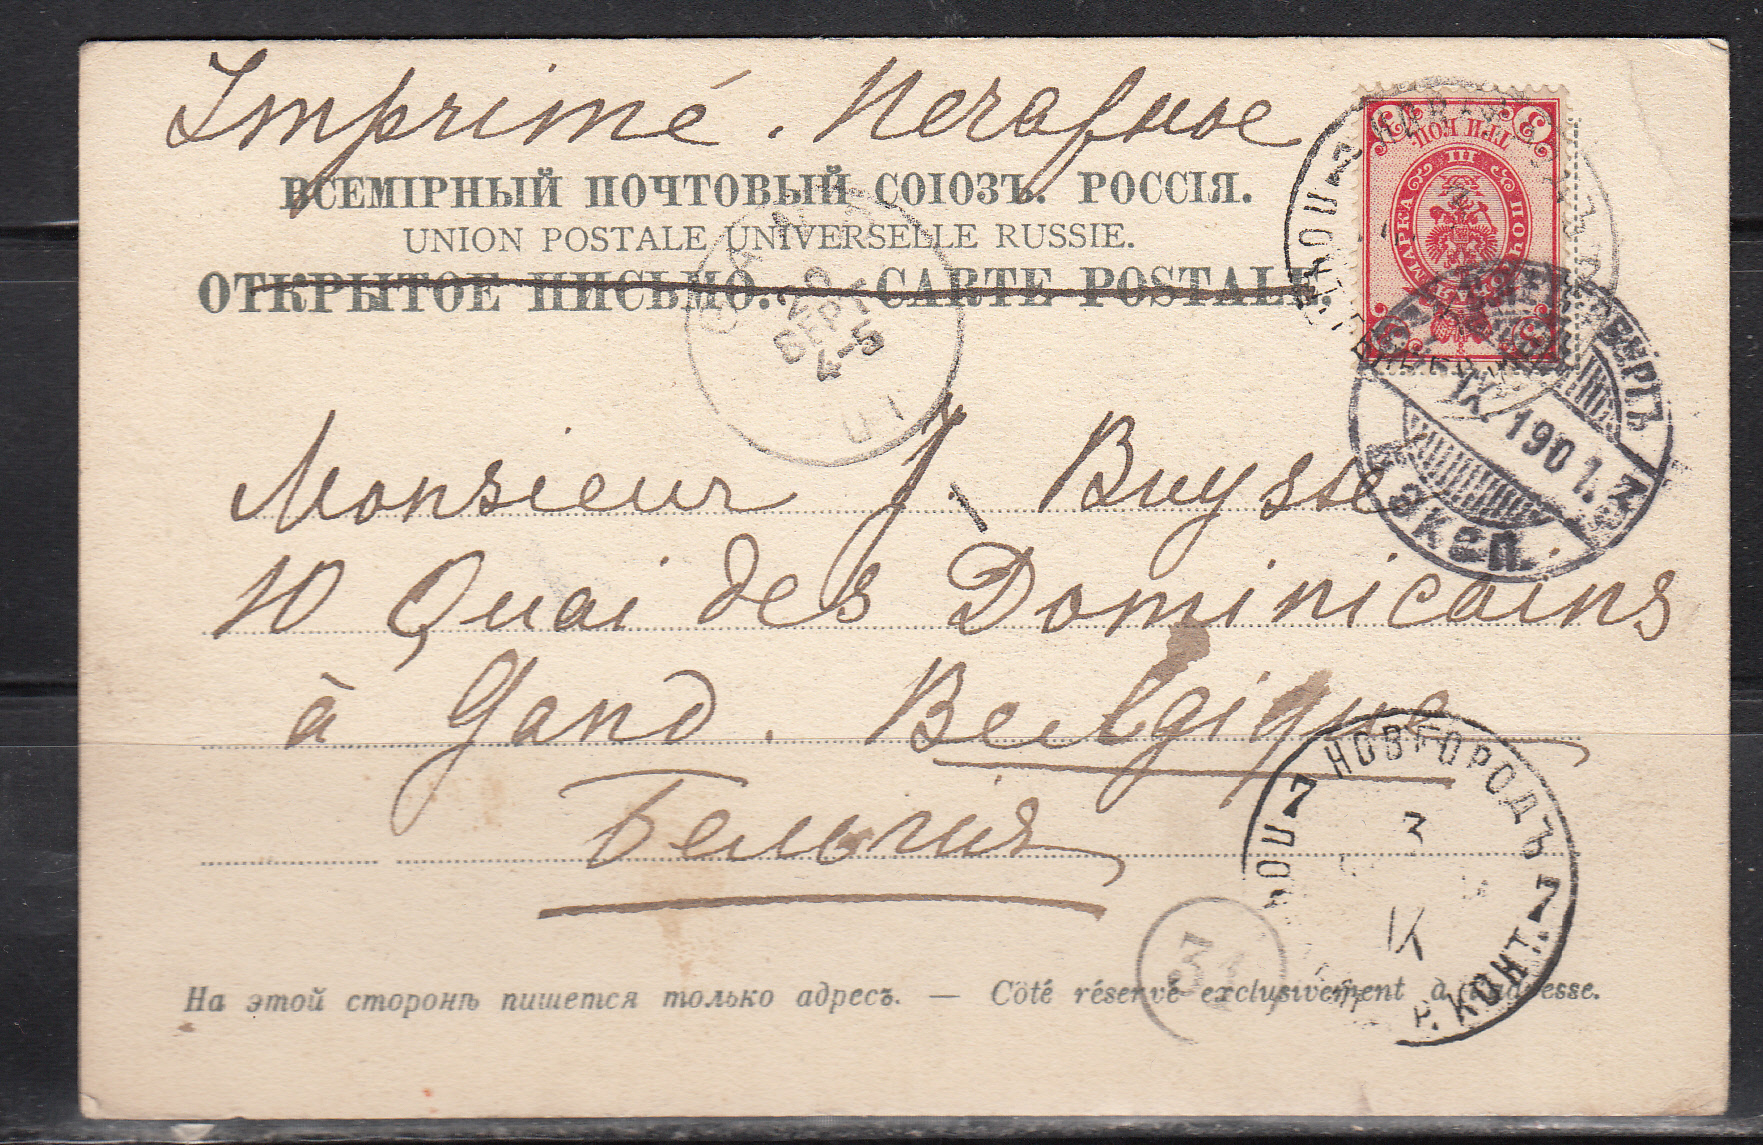 Imprimé. Печатное
ВСЕМІРНЫЙ ПОЧТОВЫЙ СОЮЗЪ. РОССІЯ.
UNION POSTALE UNIVERSELLE RUSSIE.
ОТКРЫТОЕ ПИСЬМО. — CARTE POSTALE.
ТРИ КОП.
ПОЧ МАРКА
GAND
20
SEPT
4-5
IX 1901. 3
ЭКСП.
Monsieur J. Buysse
10 Quai des Dominicains
à Gand. Belgique
Бельгия
7 НОВГОРОДЪ 7
3
IX
КОНТ.
31
На этой сторонѣ пишется только адресъ. — Côté réservé exclusivement à l'adresse.